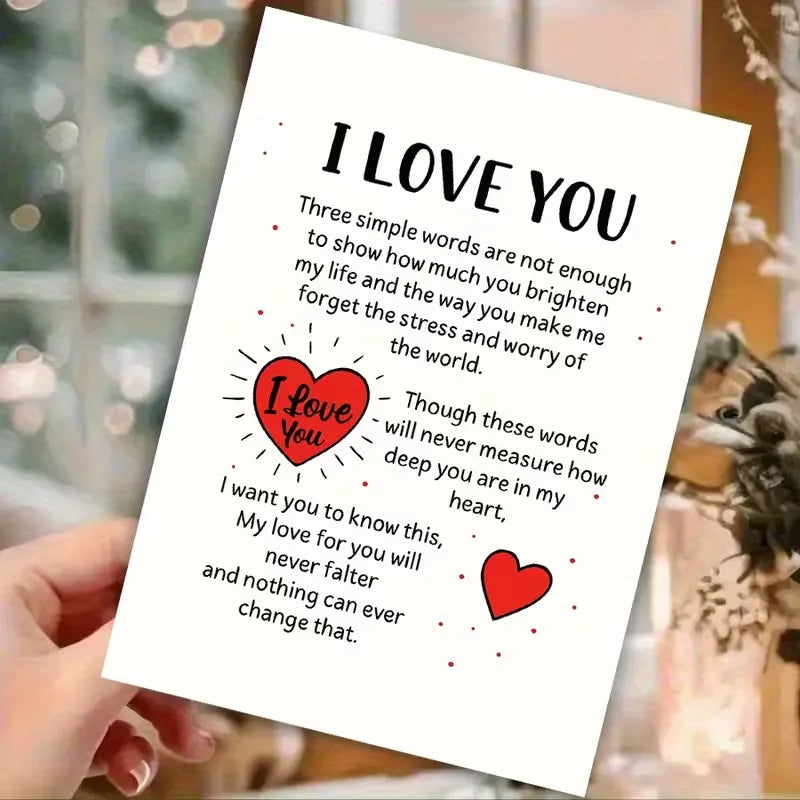 I LOVE YOU
Three simple words are not enough
to show how much you brighten
my life and the way you make me
forget the stress and worry of
the world.
I Love
You
Though these words
will never measure how
deep you are in my
heart,
I want you to know this,
My love for you will
never falter
and nothing can ever
change that.